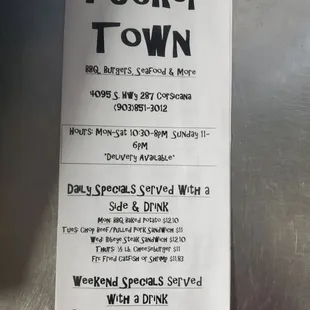 Town
BBQ, Burgers, Seafood & More
4095 S. Hwy 287 Corsicana
(903)851-3012
Hours: Mon-Sat 10:30-8pm Sunday 11-
6pm
*Delivery Available*
Daily Specials Served With a
Side & Drink
Mon: BBQ Baked Potato $12.10
Tues: Chop Beef/Pulled Pork Sandwich $11
Wed: Ribeye Steak Sandwich $12.10
Thurs: ½ lb. Cheeseburger $11
Fri: Fried Catfish or Shrimp $11.83
Weekend Specials Served
With a Drink